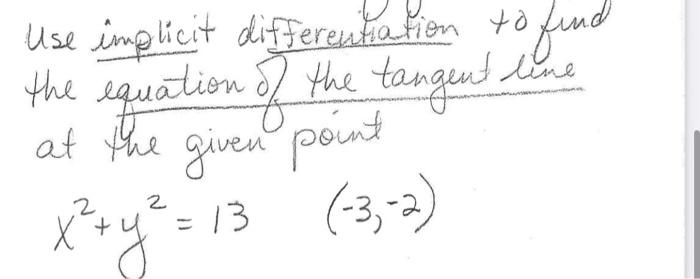 Use implicit differentiation to find
the equation of the tangent line
at the given point
x² + y² = 13 (-3,-2)